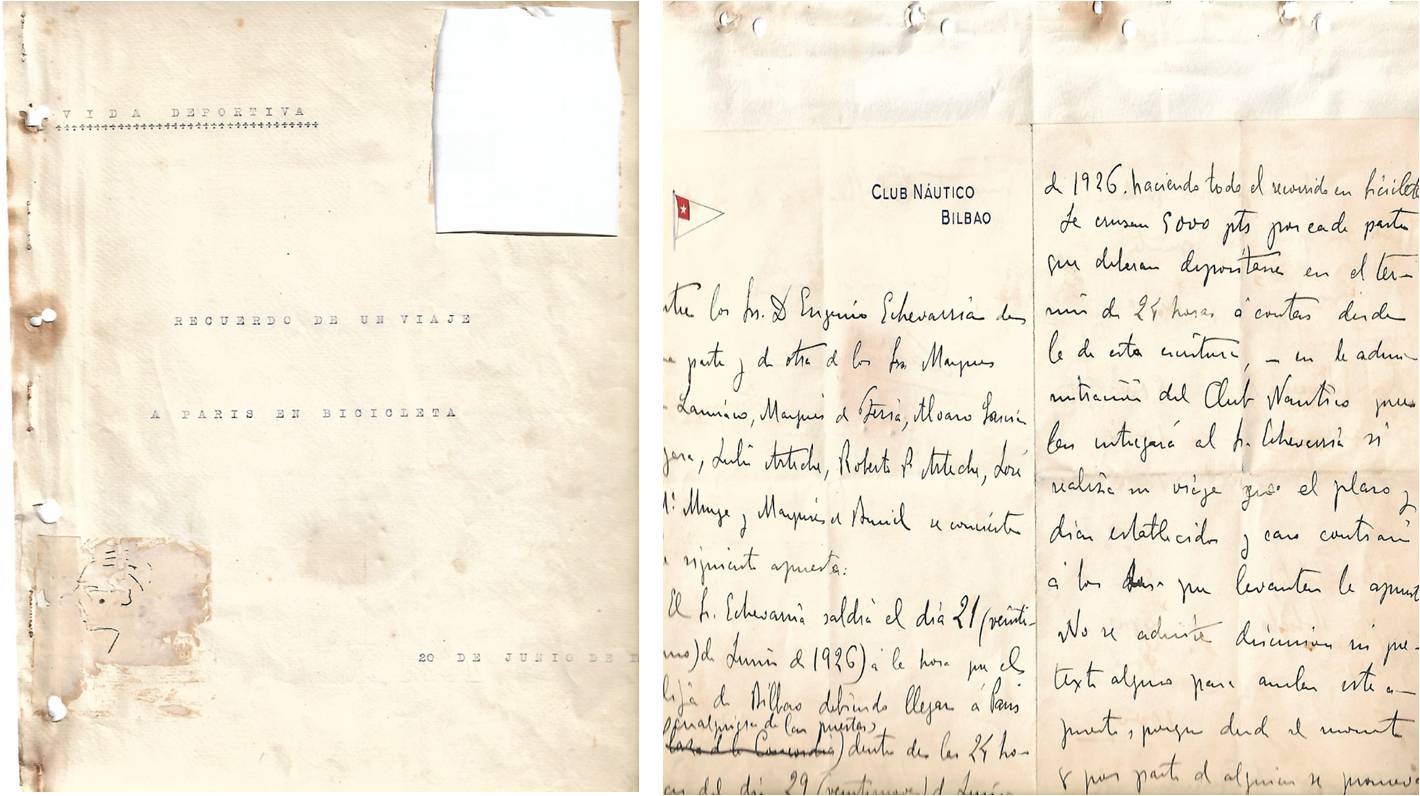 VIDA DEPORTIVA
RECUERDO DE UN VIAJE
A PARIS EN BICICLETA
20 DE JUNIO DE
CLUB NÁUTICO
BILBAO
ntre los Srs. D Eugenio Echevarria de
parte y de otra de los Srs Marques
Lamiaco, Marqués de Feria, Alvaro Garcia
Julio Arteche, Roberto P. Arteche, José
Mª Unzueta y Marqués de se convierte
siguiente apuesta:
El Sr. Echevarria saldrá el dia 21 (veinti-
uno) de Junio de 1926) á la hora que el
elija de Bilbao debiendo llegar á Paris
(cualquiera de las puertas)
dentro de las 24 ho-
ras del dia 29 (veintinueve) de Junio
de 1926. haciendo todo el recorrido en bicicleta
Se cruzan 5000 pts por cada parte
que deberan depositarse en el tér-
mino de 24 horas á contar desde
la de esta escritura, – en la admi-
nistración del Club Nautico quien
las entregará al Sr. Echevarria si
realiza su viaje en el plazo y
dias establecidos y caso contrario
á los que levanten la apuesta
No se admite discusion ni pre-
texto alguno para anular esta a-
puesta, porque desde el momento
q por parte de alguien se promueva